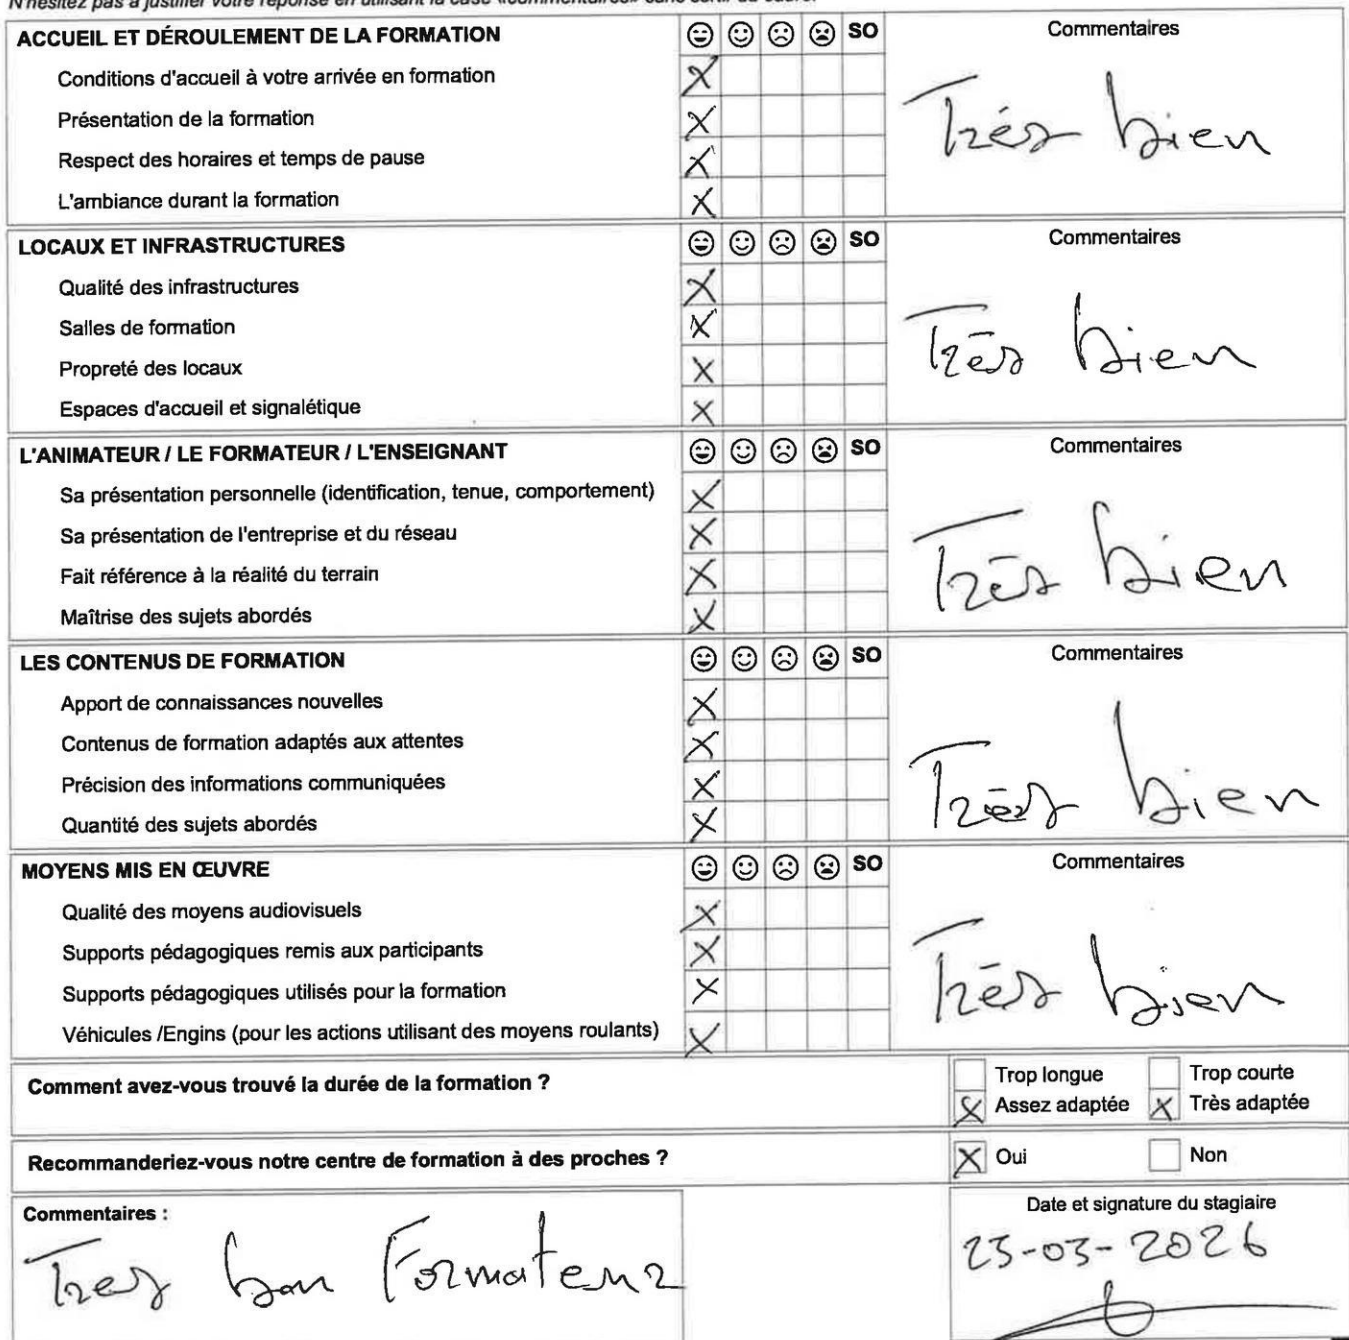 N'hésitez pas à justifier votre réponse en utilisant la case «commentaires» sans sortir du cadre.
ACCUEIL ET DÉROULEMENT DE LA FORMATION SO Commentaires
Conditions d'accueil à votre arrivée en formation X
Présentation de la formation X
Respect des horaires et temps de pause X
L'ambiance durant la formation X
Trés bien
LOCAUX ET INFRASTRUCTURES SO Commentaires
Qualité des infrastructures X
Salles de formation X
Propreté des locaux X
Espaces d'accueil et signalétique X
Trés bien
L'ANIMATEUR / LE FORMATEUR / L'ENSEIGNANT SO Commentaires
Sa présentation personnelle (identification, tenue, comportement) X
Sa présentation de l'entreprise et du réseau X
Fait référence à la réalité du terrain X
Maîtrise des sujets abordés X
Trés bien
LES CONTENUS DE FORMATION SO Commentaires
Apport de connaissances nouvelles X
Contenus de formation adaptés aux attentes X
Précision des informations communiquées X
Quantité des sujets abordés X
Trés bien
MOYENS MIS EN ŒUVRE SO Commentaires
Qualité des moyens audiovisuels X
Supports pédagogiques remis aux participants X
Supports pédagogiques utilisés pour la formation X
Véhicules /Engins (pour les actions utilisant des moyens roulants) X
Trés bien
Comment avez-vous trouvé la durée de la formation ?
Trop longue Trop courte
X Assez adaptée X Très adaptée
Recommanderiez-vous notre centre de formation à des proches ? X Oui Non
Commentaires :
Tres bon Formateur
Date et signature du stagiaire
23-03-2026